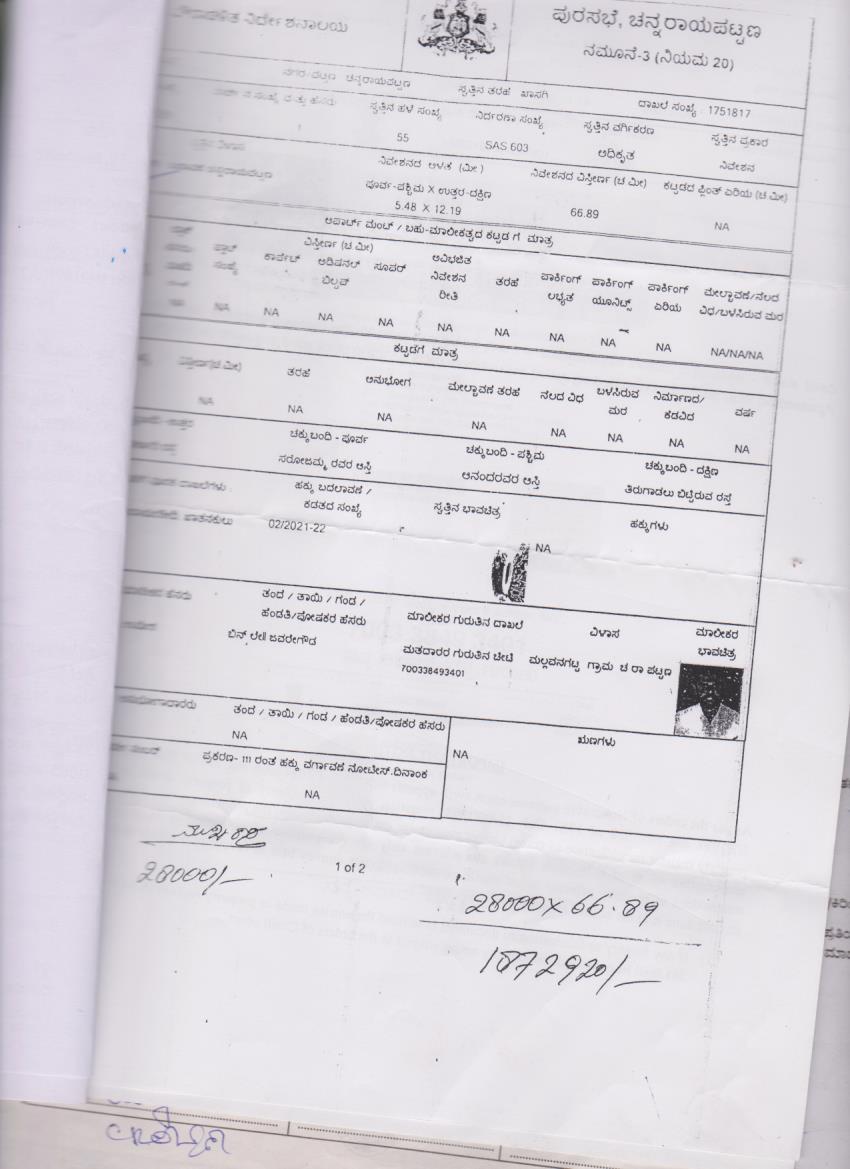 ನಿರ್ದೇಶನಾಲಯ
ಪುರಸಭೆ, ಚನ್ನರಾಯಪಟ್ಟಣ
ನಮೂನೆ-3 (ನಿಯಮ 20)
ನಗರ/ಪಟ್ಟಣ ಚನ್ನರಾಯಪಟ್ಟಣ ಸ್ವತ್ತಿನ ತರಹೆ ಖಾಸಗಿ ದಾಖಲೆ ಸಂಖ್ಯೆ : 1751817
ಸಂಖ್ಯೆ ಮತ್ತು ಹೆಸರು ಸ್ವತ್ತಿನ ಹಳೆ ಸಂಖ್ಯೆ ನಿರ್ದರಣಾ ಸಂಖ್ಯೆ ಸ್ವತ್ತಿನ ವರ್ಗೀಕರಣ ಸ್ವತ್ತಿನ ಪ್ರಕಾರ
55 SAS 603 ಅಧಿಕೃತ ನಿವೇಶನ
ಸ್ವತ್ತಿನ ವಿಳಾಸ ನಿವೇಶನದ ಅಳತೆ (ಮೀ) ನಿವೇಶನದ ವಿಸ್ತೀರ್ಣ (ಚ ಮೀ) ಕಟ್ಟಡದ ಪ್ಲಿಂತ್ ಏರಿಯ (ಚ ಮೀ)
ಚನ್ನರಾಯಪಟ್ಟಣ ಪೂರ್ವ-ಪಶ್ಚಿಮ X ಉತ್ತರ-ದಕ್ಷಿಣ
5.48 X 12.19 66.89 NA
ಅಪಾರ್ಟ್ ಮೆಂಟ್ / ಬಹು-ಮಾಲೀಕತ್ವದ ಕಟ್ಟಡಗೆ ಮಾತ್ರ
ವಿಸ್ತೀರ್ಣ (ಚ ಮೀ) ಅವಿಭಜಿತ
ಫ್ಲಾಟ್ ಕಾರ್ಪೆಟ್ ಅಡಿಷನಲ್ ಸೂಪರ್ ನಿವೇಶನ ತರಹೆ ಪಾರ್ಕಿಂಗ್ ಪಾರ್ಕಿಂಗ್ ಪಾರ್ಕಿಂಗ್ ಮೇಲ್ಛಾವಣೆ/ನೆಲದ
ಸಂಖ್ಯೆ ಬಿಲ್ಟಪ್ ರೀತಿ ಲಭ್ಯತೆ ಯೂನಿಟ್ಸ್ ಏರಿಯ ವಿಧ/ಬಳಸಿರುವ ಮರ
NA NA NA NA NA NA NA NA NA NA NA/NA/NA
ಕಟ್ಟಡಗೆ ಮಾತ್ರ
ವಿಸ್ತೀರ್ಣ(ಚ ಮೀ) ತರಹೆ ಅನುಭೋಗ ಮೇಲ್ಛಾವಣೆ ತರಹೆ ನೆಲದ ವಿಧ ಬಳಸಿರುವ ನಿರ್ಮಾಣದ/ ವರ್ಷ
ಮರ ಕೆಡವಿದ
NA NA NA NA NA NA NA NA
ಚಕ್ಕುಬಂದಿ - ಪೂರ್ವ ಚಕ್ಕುಬಂದಿ - ಪಶ್ಚಿಮ ಚಕ್ಕುಬಂದಿ - ದಕ್ಷಿಣ
ಸರೋಜಮ್ಮ ರವರ ಆಸ್ತಿ ಆನಂದರವರ ಆಸ್ತಿ ತಿರುಗಾಡಲು ಬಿಟ್ಟಿರುವ ರಸ್ತೆ
ದಾಖಲೆಗಳು ಹಕ್ಕು ಬದಲಾವಣೆ / ಸ್ವತ್ತಿನ ಭಾವಚಿತ್ರ ಹಕ್ಕುಗಳು
ಕಡತದ ಸಂಖ್ಯೆ
02/2021-22 NA
ಹೆಸರು ತಂದೆ / ತಾಯಿ / ಗಂಡ / ಮಾಲೀಕರ ಗುರುತಿನ ದಾಖಲೆ ವಿಳಾಸ ಮಾಲೀಕರ
ಹೆಂಡತಿ/ಪೋಷಕರ ಹೆಸರು ಭಾವಚಿತ್ರ
ಬಿನ್ ಲೇ|| ಜವರೇಗೌಡ ಮತದಾರರ ಗುರುತಿನ ಚೀಟಿ ಮಲ್ಲವನಗಟ್ಟ ಗ್ರಾಮ ಚ ರಾ ಪಟ್ಟಣ
700338493401
ತಂದೆ / ತಾಯಿ / ಗಂಡ / ಹೆಂಡತಿ/ಪೋಷಕರ ಹೆಸರು ಋಣಗಳು
NA NA
ಪ್ರಕರಣ- 111 ರಂತೆ ಹಕ್ಕು ವರ್ಗಾವಣೆ ನೋಟೀಸ್ ದಿನಾಂಕ
NA
28000/-
1 of 2
28000 X 66.89
1872920/-